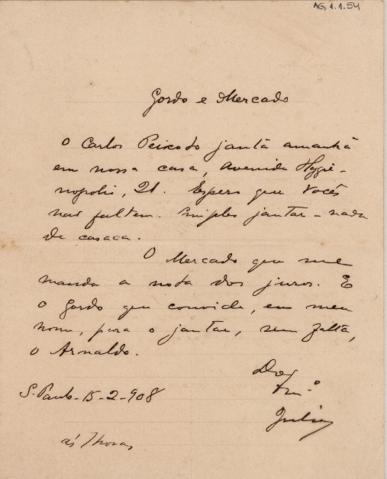 AG.1.1.54
Gordo e Mercado
O Carlos Peixoto janta amanhã
em nossa casa, Avenida Hygie-
nopolis, 21. Espero que Vocês
não faltem. Simples jantar - nada
de casaca.
O Mercado que me
manda a nota dos juros. E
o Gordo que convide, em meu
nome, para o jantar, sem falta,
o Arnaldo.
Do
Am.º
Julio
S. Paulo - 15-2-908
ás 7 horas